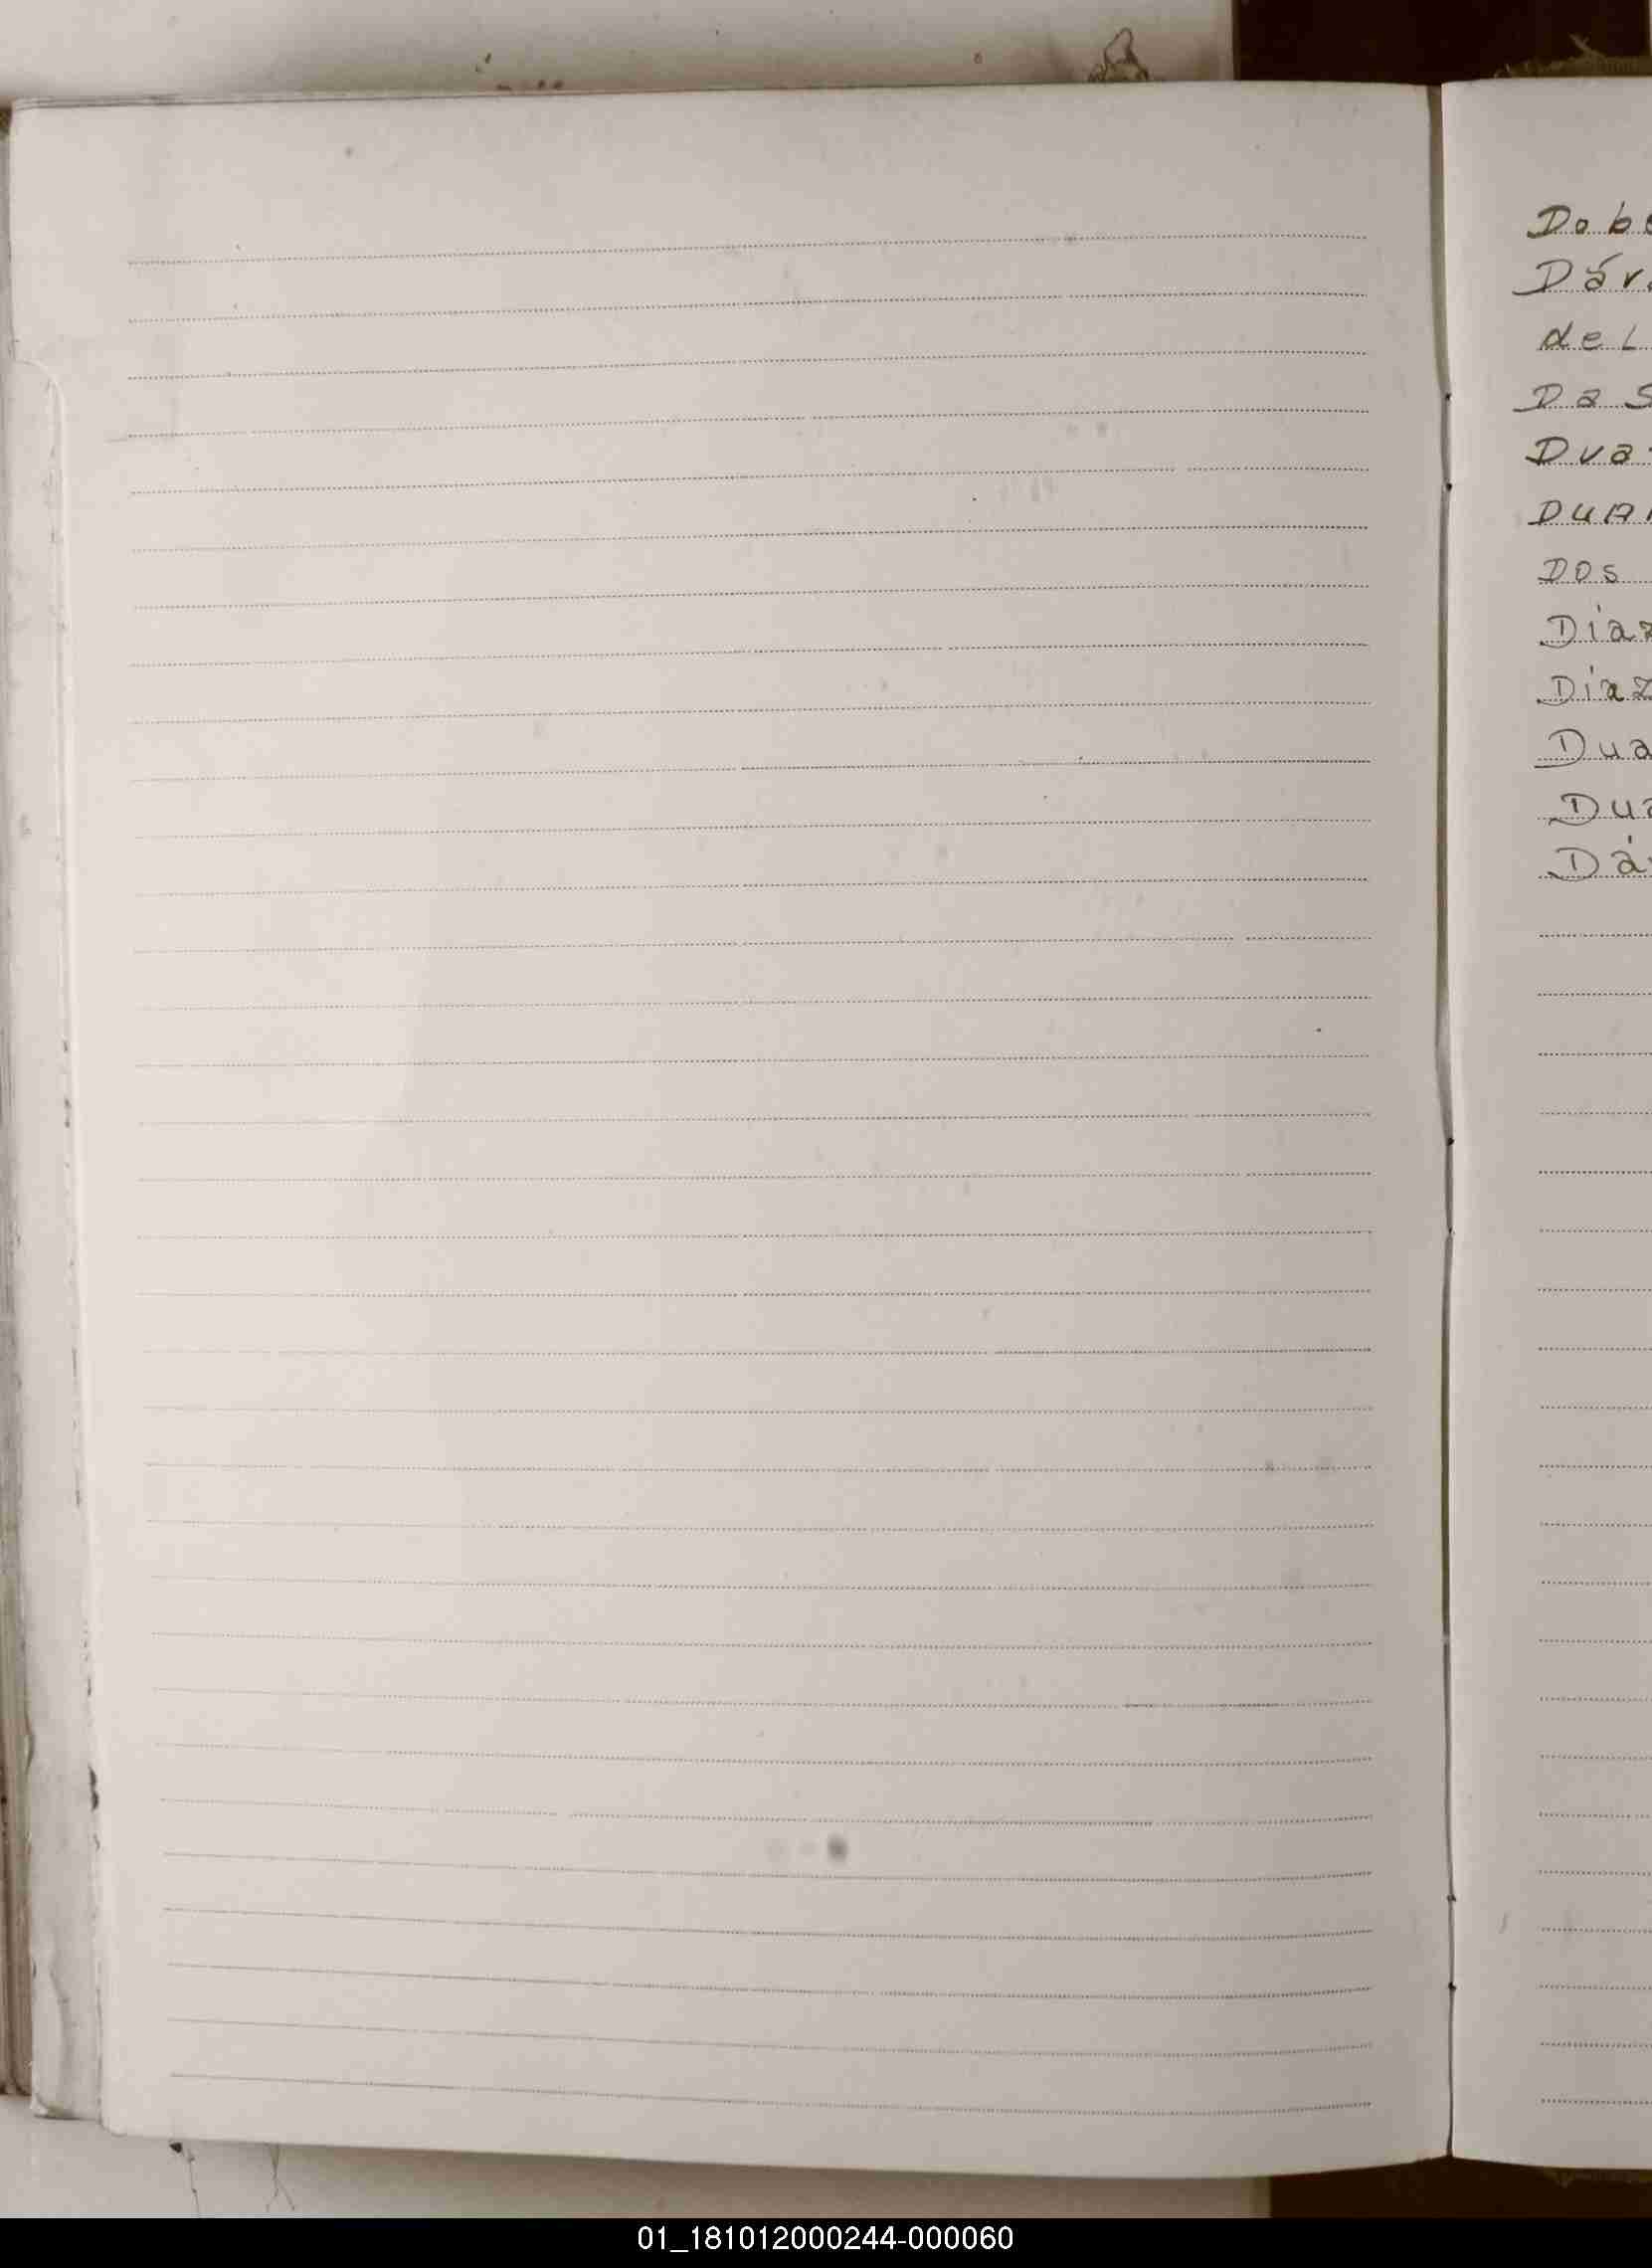 Dob
Dáv
del
Da S
Dua
DUA
Dos
Díaz
Díaz
Dua
Dua
Dá
01_181012000244-000060